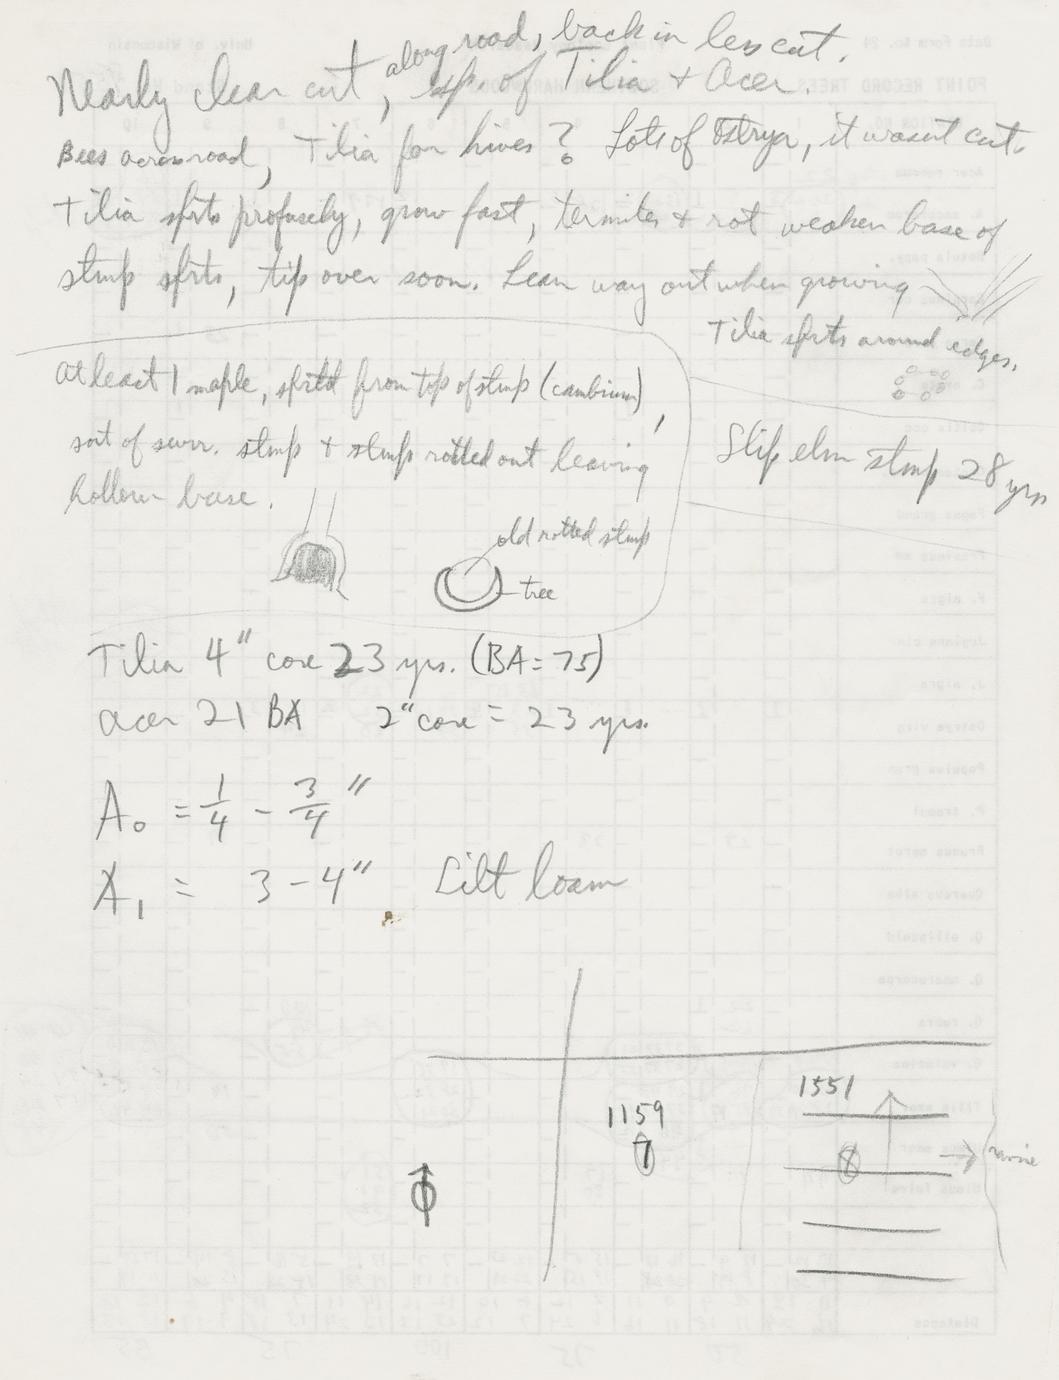 Nearly clear cut, along road, back in less cut.
sp. of Tilia + Acer.
Bees across road, Tilia for hives? Lots of Ostrya, it wasnt cut.
Tilia sprts profusely, grow fast, termites + rot weaken base of
stmp sprts, tip over soon. Lean way out when growing
Tilia sprts around edges.
at least 1 maple, sprtd from top of stmp (cambium),
sort of surr. stmp + stmp rotted out leaving
hollow base.
Slip elm stmp 28 yrs
old rotted stmp
tree
Tilia 4" core 23 yrs. (BA=75)
acer 21 BA 2" core = 23 yrs.
A0 = 1/4 - 3/4"
A1 = 3-4" Silt loam
1551
1159
7
8
ravine